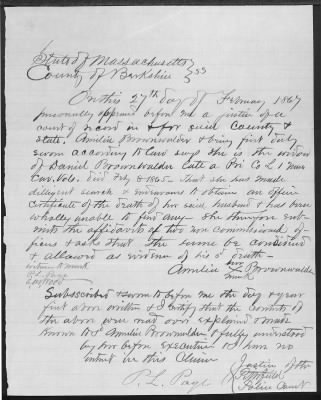 State of Massachusetts
County of Berkshire } SS
On this 27th day of February 1867
personally appeared before me a justice of a
court of record in & for said County &
State. Amelia Brownwalder & being first duly
sworn according to law says she is the widow
of Daniel Brownwalder Late a Pvt Co L 1 Mass
Cav. Vols. Died Feby 8 1865 - That she has made
diligent search & endeavours to obtain an officers
Certificate of the death of her said husband & has been
wholly unable to find any She therefore sub-
mits the affidavits of two non commissioned of-
ficers & asks that the same be considered
& allowed as evidence of his death -
witness to mark
P. L. Page
her
Amelia Brownwalder
mark
Subscribed & sworn to before me the day & year
first above written & I certify that the contents of
the above were read over explained & made
known to Sd Amelia Brownwalder & fully understood
by her before executing & I have no
interest in this Claim
P. L. Page
Justice of the
Police Court